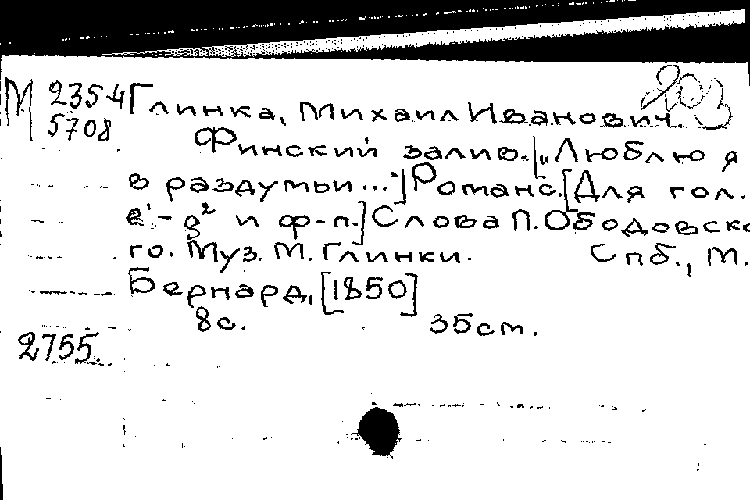 М 2354 Глинка, Михаил Иванович. 203
5708. Финский залив. ["Люблю я
в раздумьи..."] Романс. [Для гол.
e¹-g² и ф-п.] Слова П. Ободовско
го. Муз. М. Глинки. Спб., М.
Бернард, [1850]
8с. 35см.
2755.